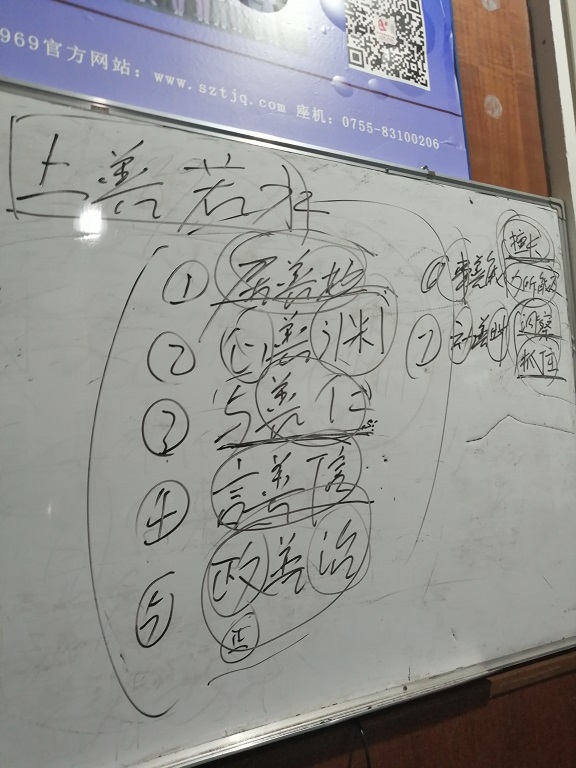 969官方网站：www.sztjq.com 座机：0755-83100206
上善若水
① 居善地
② 心善渊
③ 与善仁
④ 言善信
⑤ 政善治
正
⑥ 事善能
擅长
⑦ 动善时
洞察
抓住